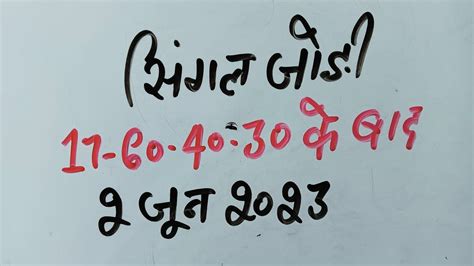 सिंगल जोड़ी
17-60.40.30 के बाद
2 जून 2023